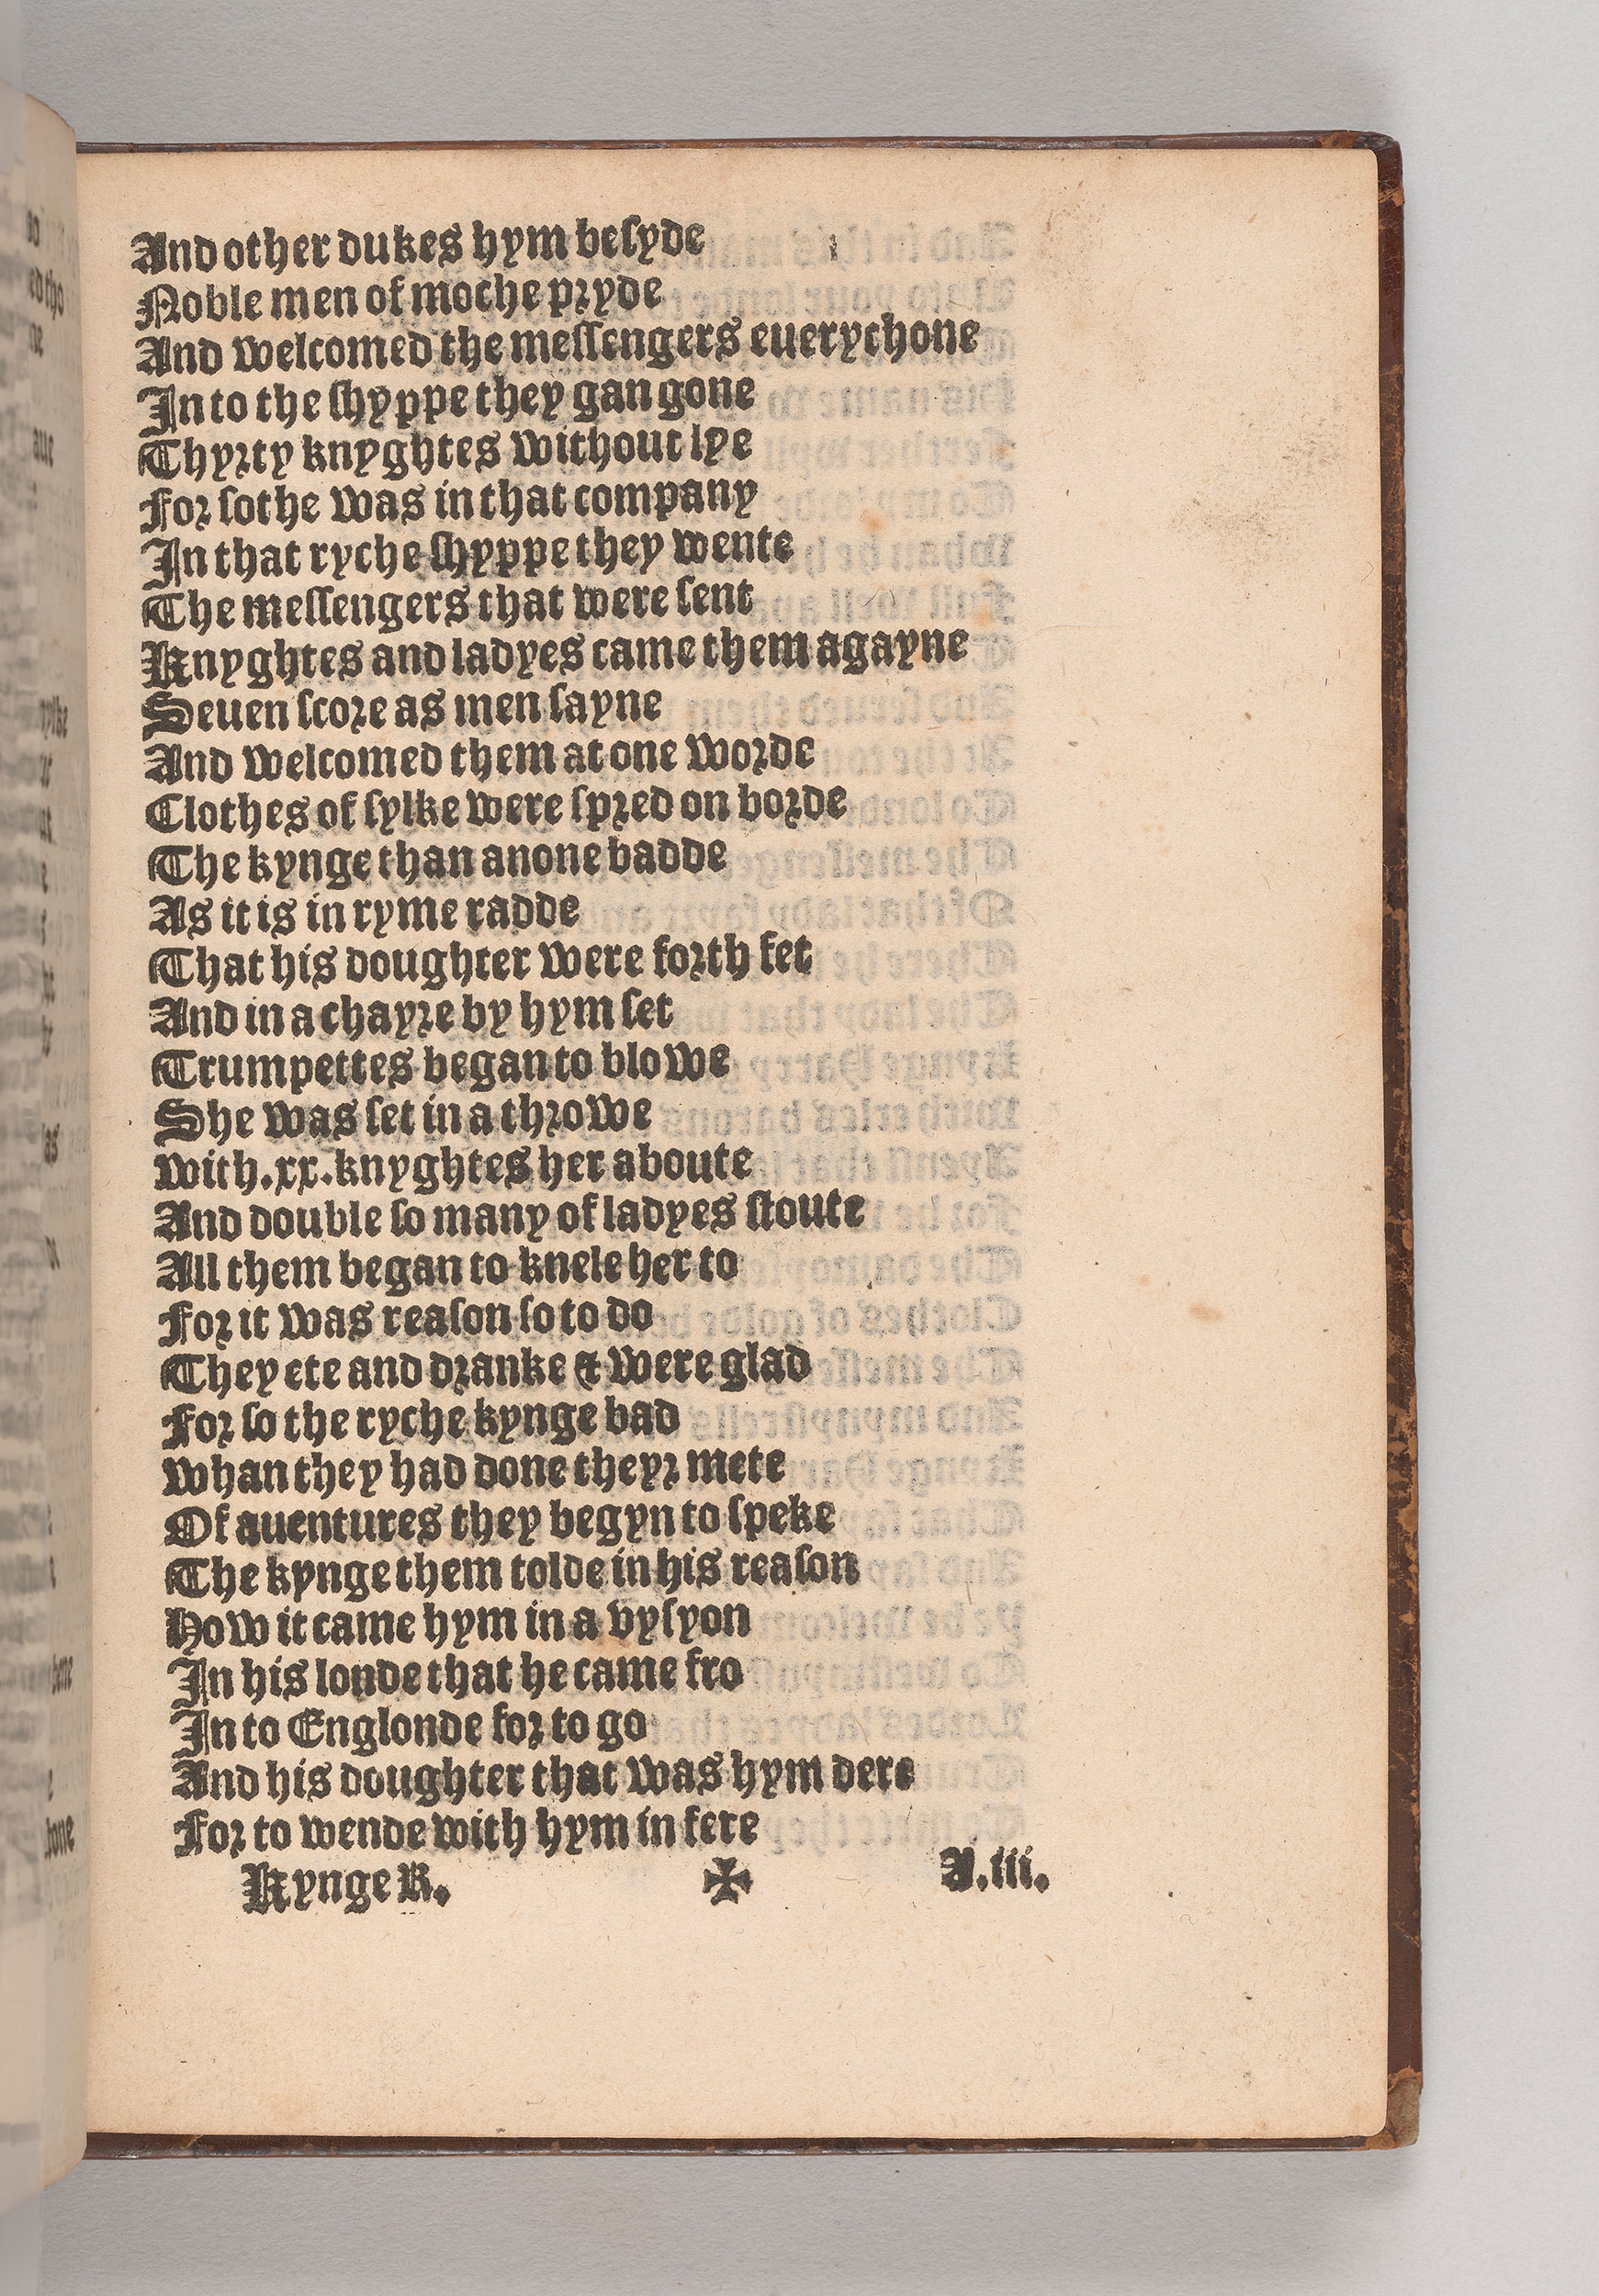 And other dukes hym beſyde
Noble men of moche pryde
And welcomed the meſſengers euerychone
In to the ſhyppe they gan gone
Thyrty knyghtes without lye
For ſothe was in that company
In that ryche ſhyppe they wente
The meſſengers that were ſent
Knyghtes and ladyes came them agayne
Seuen ſcore as men ſayne
And welcomed them at one worde
Clothes of ſylke were ſpred on borde
The kynge than anone badde
As it is in ryme radde
That his doughter were forth fet
And in a chayre by hym ſet
Trumpettes began to blowe
She was ſet in a throwe
with.xx.knyghtes her aboute
And double ſo many of ladyes ſtoute
All them began to knele her to
For it was reaſon ſo to do
They ete and dranke & were glad
For ſo the ryche kynge bad
whan they had done theyr mete
Of auentures they begyn to ſpeke
The kynge them tolde in his reaſon
How it came hym in a vyſyon
In his londe that he came fro
In to Englonde for to go
And his doughter that was hym dere
For to wende with hym in fere
Kynge R. ✠ A.iii.